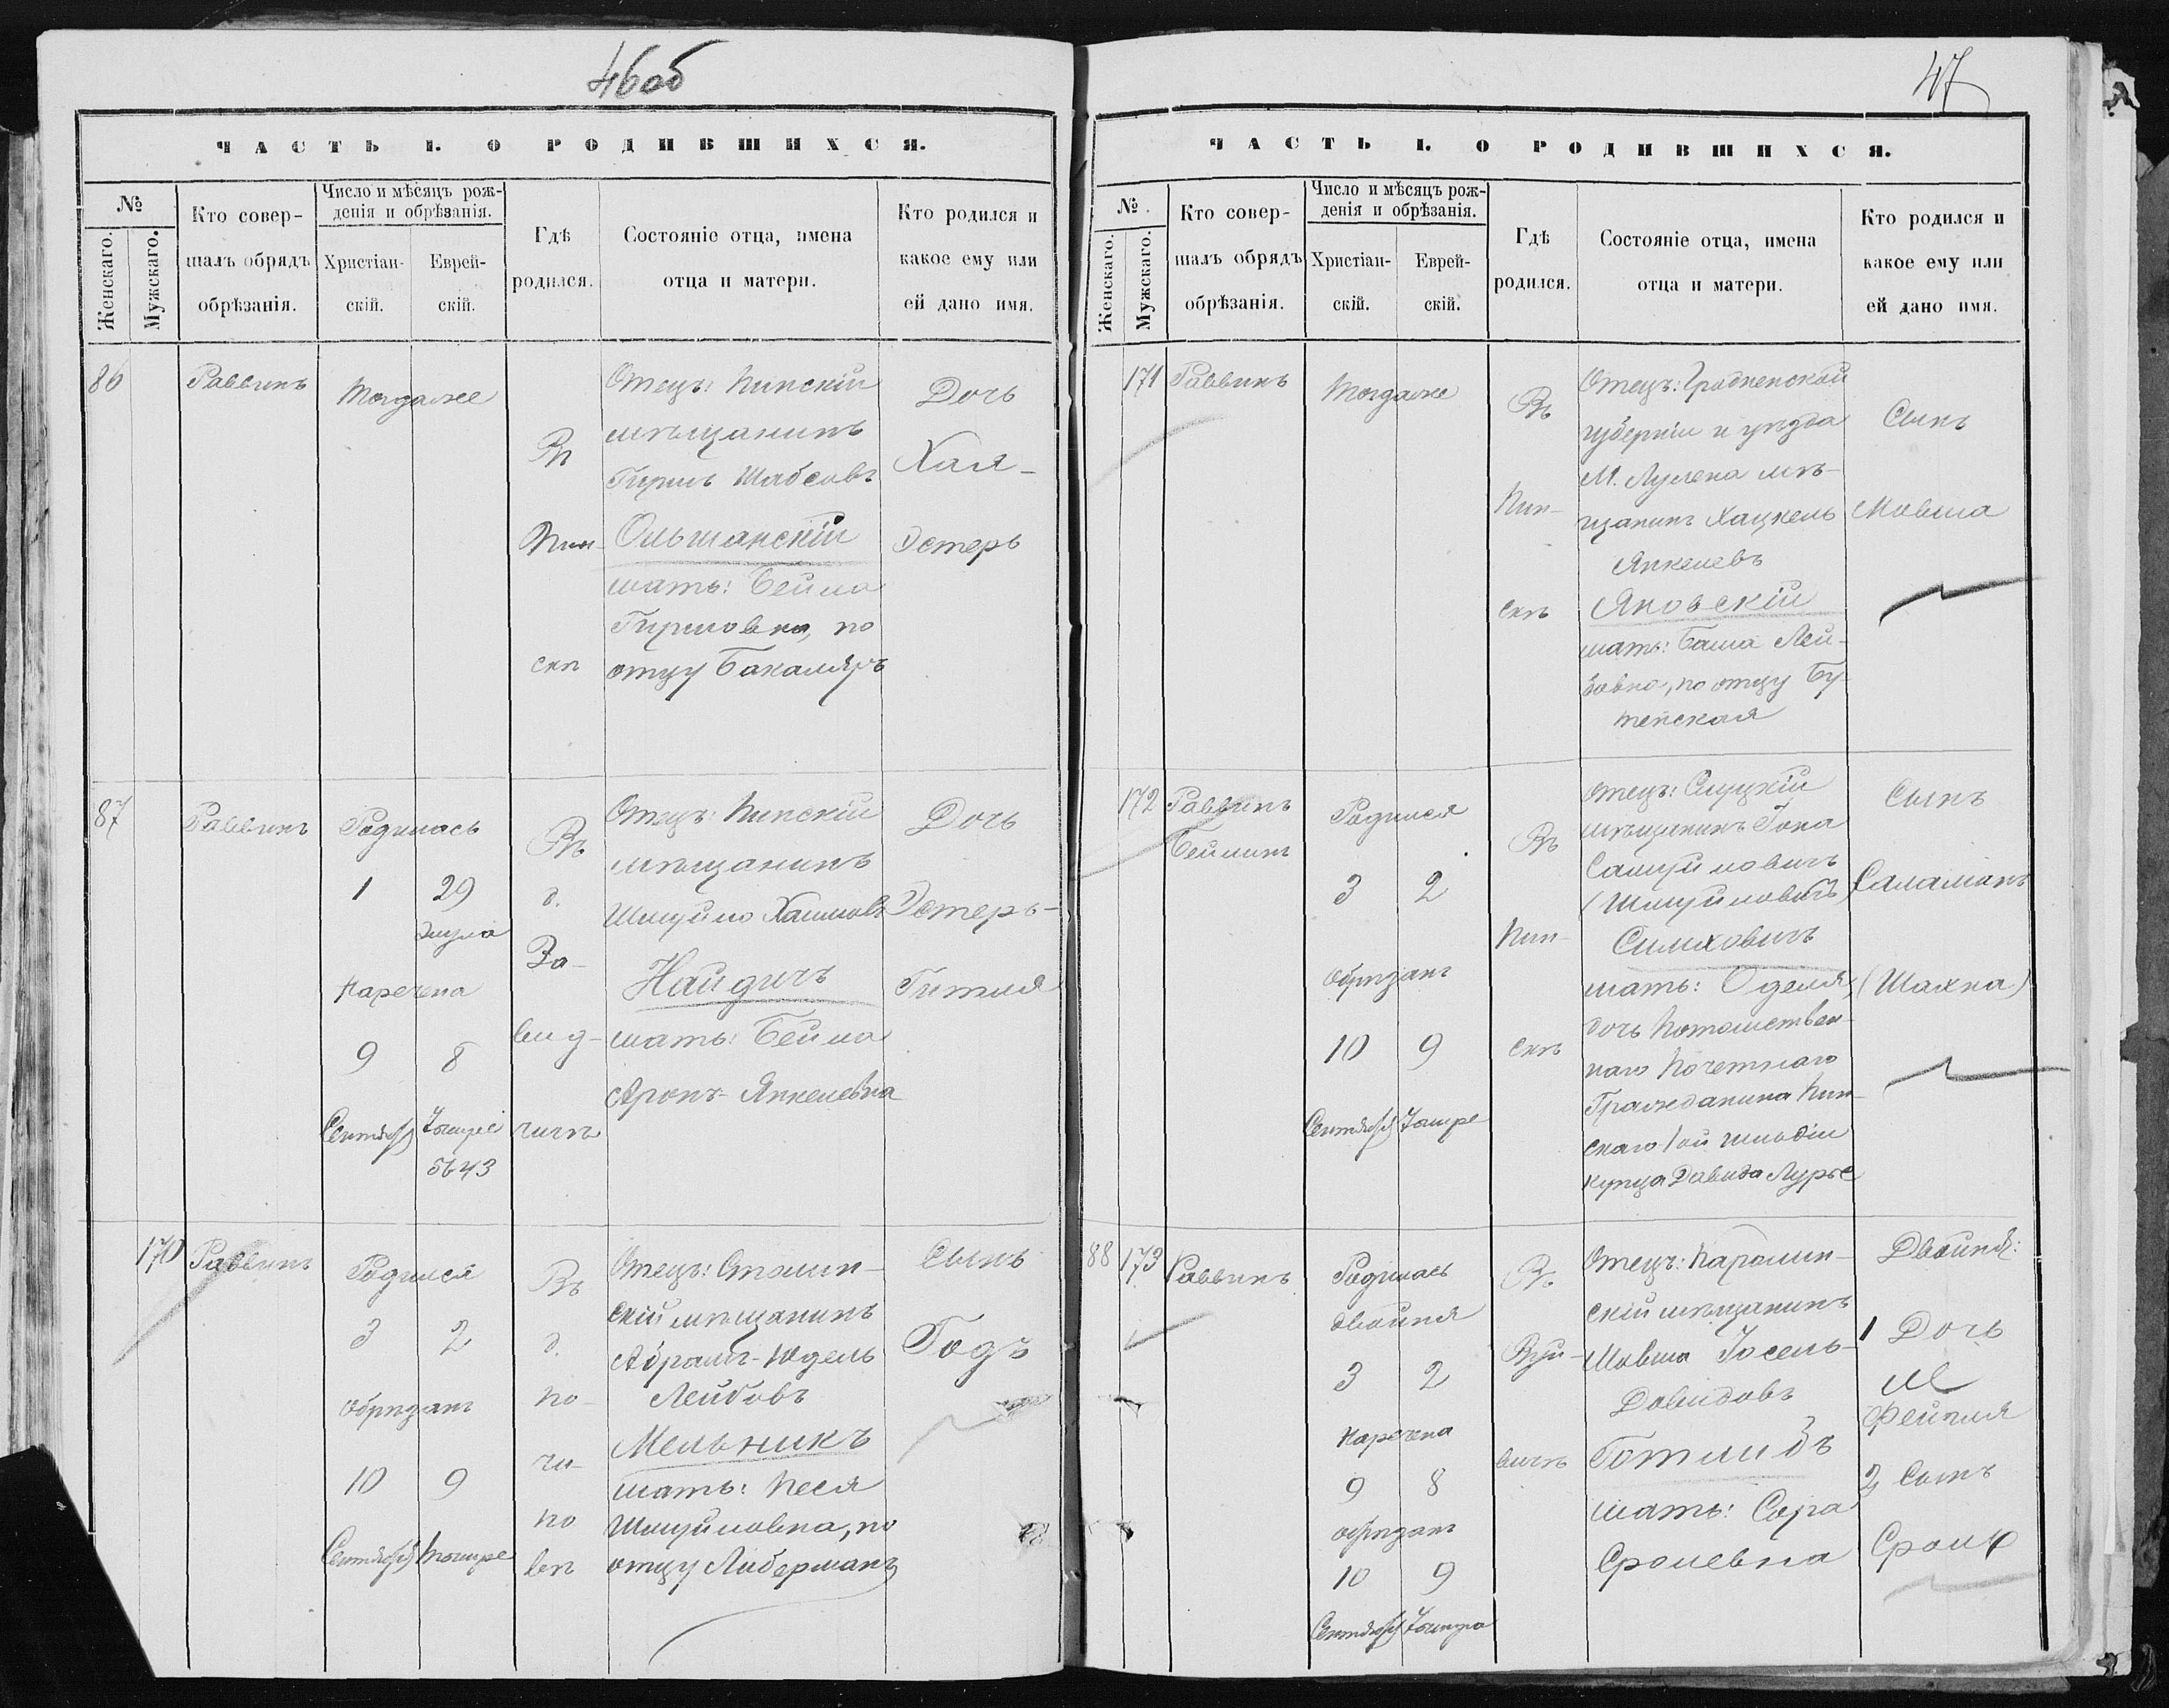 46об
ЧАСТЬ I. О РОДИВШИХСЯ.
№
Женскаго.
Мужскаго.
Кто совер-
шалъ обрядъ
обрѣзанія.
Число и мѣсяцъ рож-
денія и обрѣзанія.
Христіан-
скій.
Еврей-
скій.
Гдѣ
родился.
Состояніе отца, имена
отца и матери.
Кто родился и
какое ему или
ей дано имя.
86
Раввинъ
Тогдаже
Въ
Пин-
скѣ
Отецъ: Пинскій
мѣщанинъ
Гиршъ Шабсовъ
Ольшанскій
мать: Бейла
Гиршовна, по
отцу Бакаляръ
Дочь
Хая-
Эстеръ
87
Раввинъ
Родилась
1 29
Элула
Наречена
9 8
Сентября Тошре
5643
Въ
д.
За-
вид-
чичѣ
Отецъ: Пинскій
мѣщанинъ
Шмуйло Хаимовъ
Найдичъ
мать: Бейла
Аронъ-Янкелевна
Дочь
Эстеръ-
Гитля
170
Раввинъ
Родился
3 2
Обрѣзанъ
10 9
Сентября Тошре
Въ
д.
по-
чи-
по
вѣ
Отецъ: Столин-
скій мѣщанинъ
Абрамъ-Юдель
Лейбовъ
Мельникъ
мать: Песя
Шмуйловна, по
отцу Либерманъ
Сынъ
Годъ
47
ЧАСТЬ I. О РОДИВШИХСЯ.
№
Женскаго.
Мужскаго.
Кто совер-
шалъ обрядъ
обрѣзанія.
Число и мѣсяцъ рож-
денія и обрѣзанія.
Христіан-
скій.
Еврей-
скій.
Гдѣ
родился.
Состояніе отца, имена
отца и матери.
Кто родился и
какое ему или
ей дано имя.
171
Раввинъ
Тогдаже
Въ
Пин-
скѣ
Отецъ: Гродненской
губерніи и уѣзда
М. Лунена мѣ-
щанинъ Хацкель
Янкелевъ
Яновскій
мать: Баша Лей-
бовна, по отцу Бу-
тенская
Сынъ
Мовша
172
Раввинъ
Бейлинъ
Родился
3 2
Обрѣзанъ
10 9
Сентября Тошре
Въ
Пин-
скѣ
Отецъ: Слуцкій
мѣщанинъ Гона
Самуйловичъ
(Шмуйловичъ)
Симховичъ
мать: Оделя,
дочь Потомствен-
наго Почетнаго
Гражданина Пин-
скаго 1ой гильдіи
купца Давида Лурье
Сынъ
Саламонъ
(Шахна)
88 173
Раввинъ
Родилась
двойня
3 2
Наречена
9 8
Обрѣзанъ
10 9
Сентября Тошре
Въ
Вуй-
вичѣ
Отецъ: Каролин-
скій мѣщанинъ
Мовша Іосель-
Давидовъ
Готлибъ
мать: Сора
Сролевна
Двойня:
1 Дочь
Фейгля
2 Сынъ
Сроль